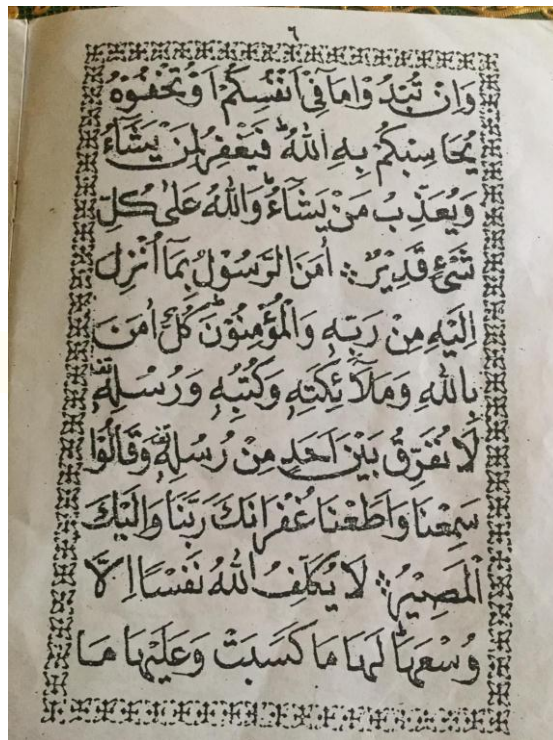 ٦
وَاِنْ تُبْدُوْا مَا فِيْٓ اَنْفُسِكُمْ اَوْ تُخْفُوْهُ
يُحَاسِبْكُمْ بِهِ اللهُ ؕ فَيَغْفِرُ لِمَنْ يَشَآءُ
وَيُعَذِّبُ مَنْ يَشَآءُ ؕ وَاللهُ عَلٰى كُلِّ
شَيْءٍ قَدِيْرٌ ۞ اٰمَنَ الرَّسُوْلُ بِمَآ اُنْزِلَ
اِلَيْهِ مِنْ رَبِّهٖ وَالْمُؤْمِنُوْنَ ؕ كُلٌّ اٰمَنَ
بِاللهِ وَمَلَآئِكَتِهٖ وَكُتُبِهٖ وَرُسُلِهٖ
لَا نُفَرِّقُ بَيْنَ اَحَدٍ مِنْ رُسُلِهٖ وَقَالُوْا
سَمِعْنَا وَاَطَعْنَا غُفْرَانَكَ رَبَّنَا وَاِلَيْكَ
الْمَصِيْرُ ۞ لَا يُكَلِّفُ اللهُ نَفْسًا اِلَّا
وُسْعَهَا ؕ لَهَا مَا كَسَبَتْ وَعَلَيْهَا مَا